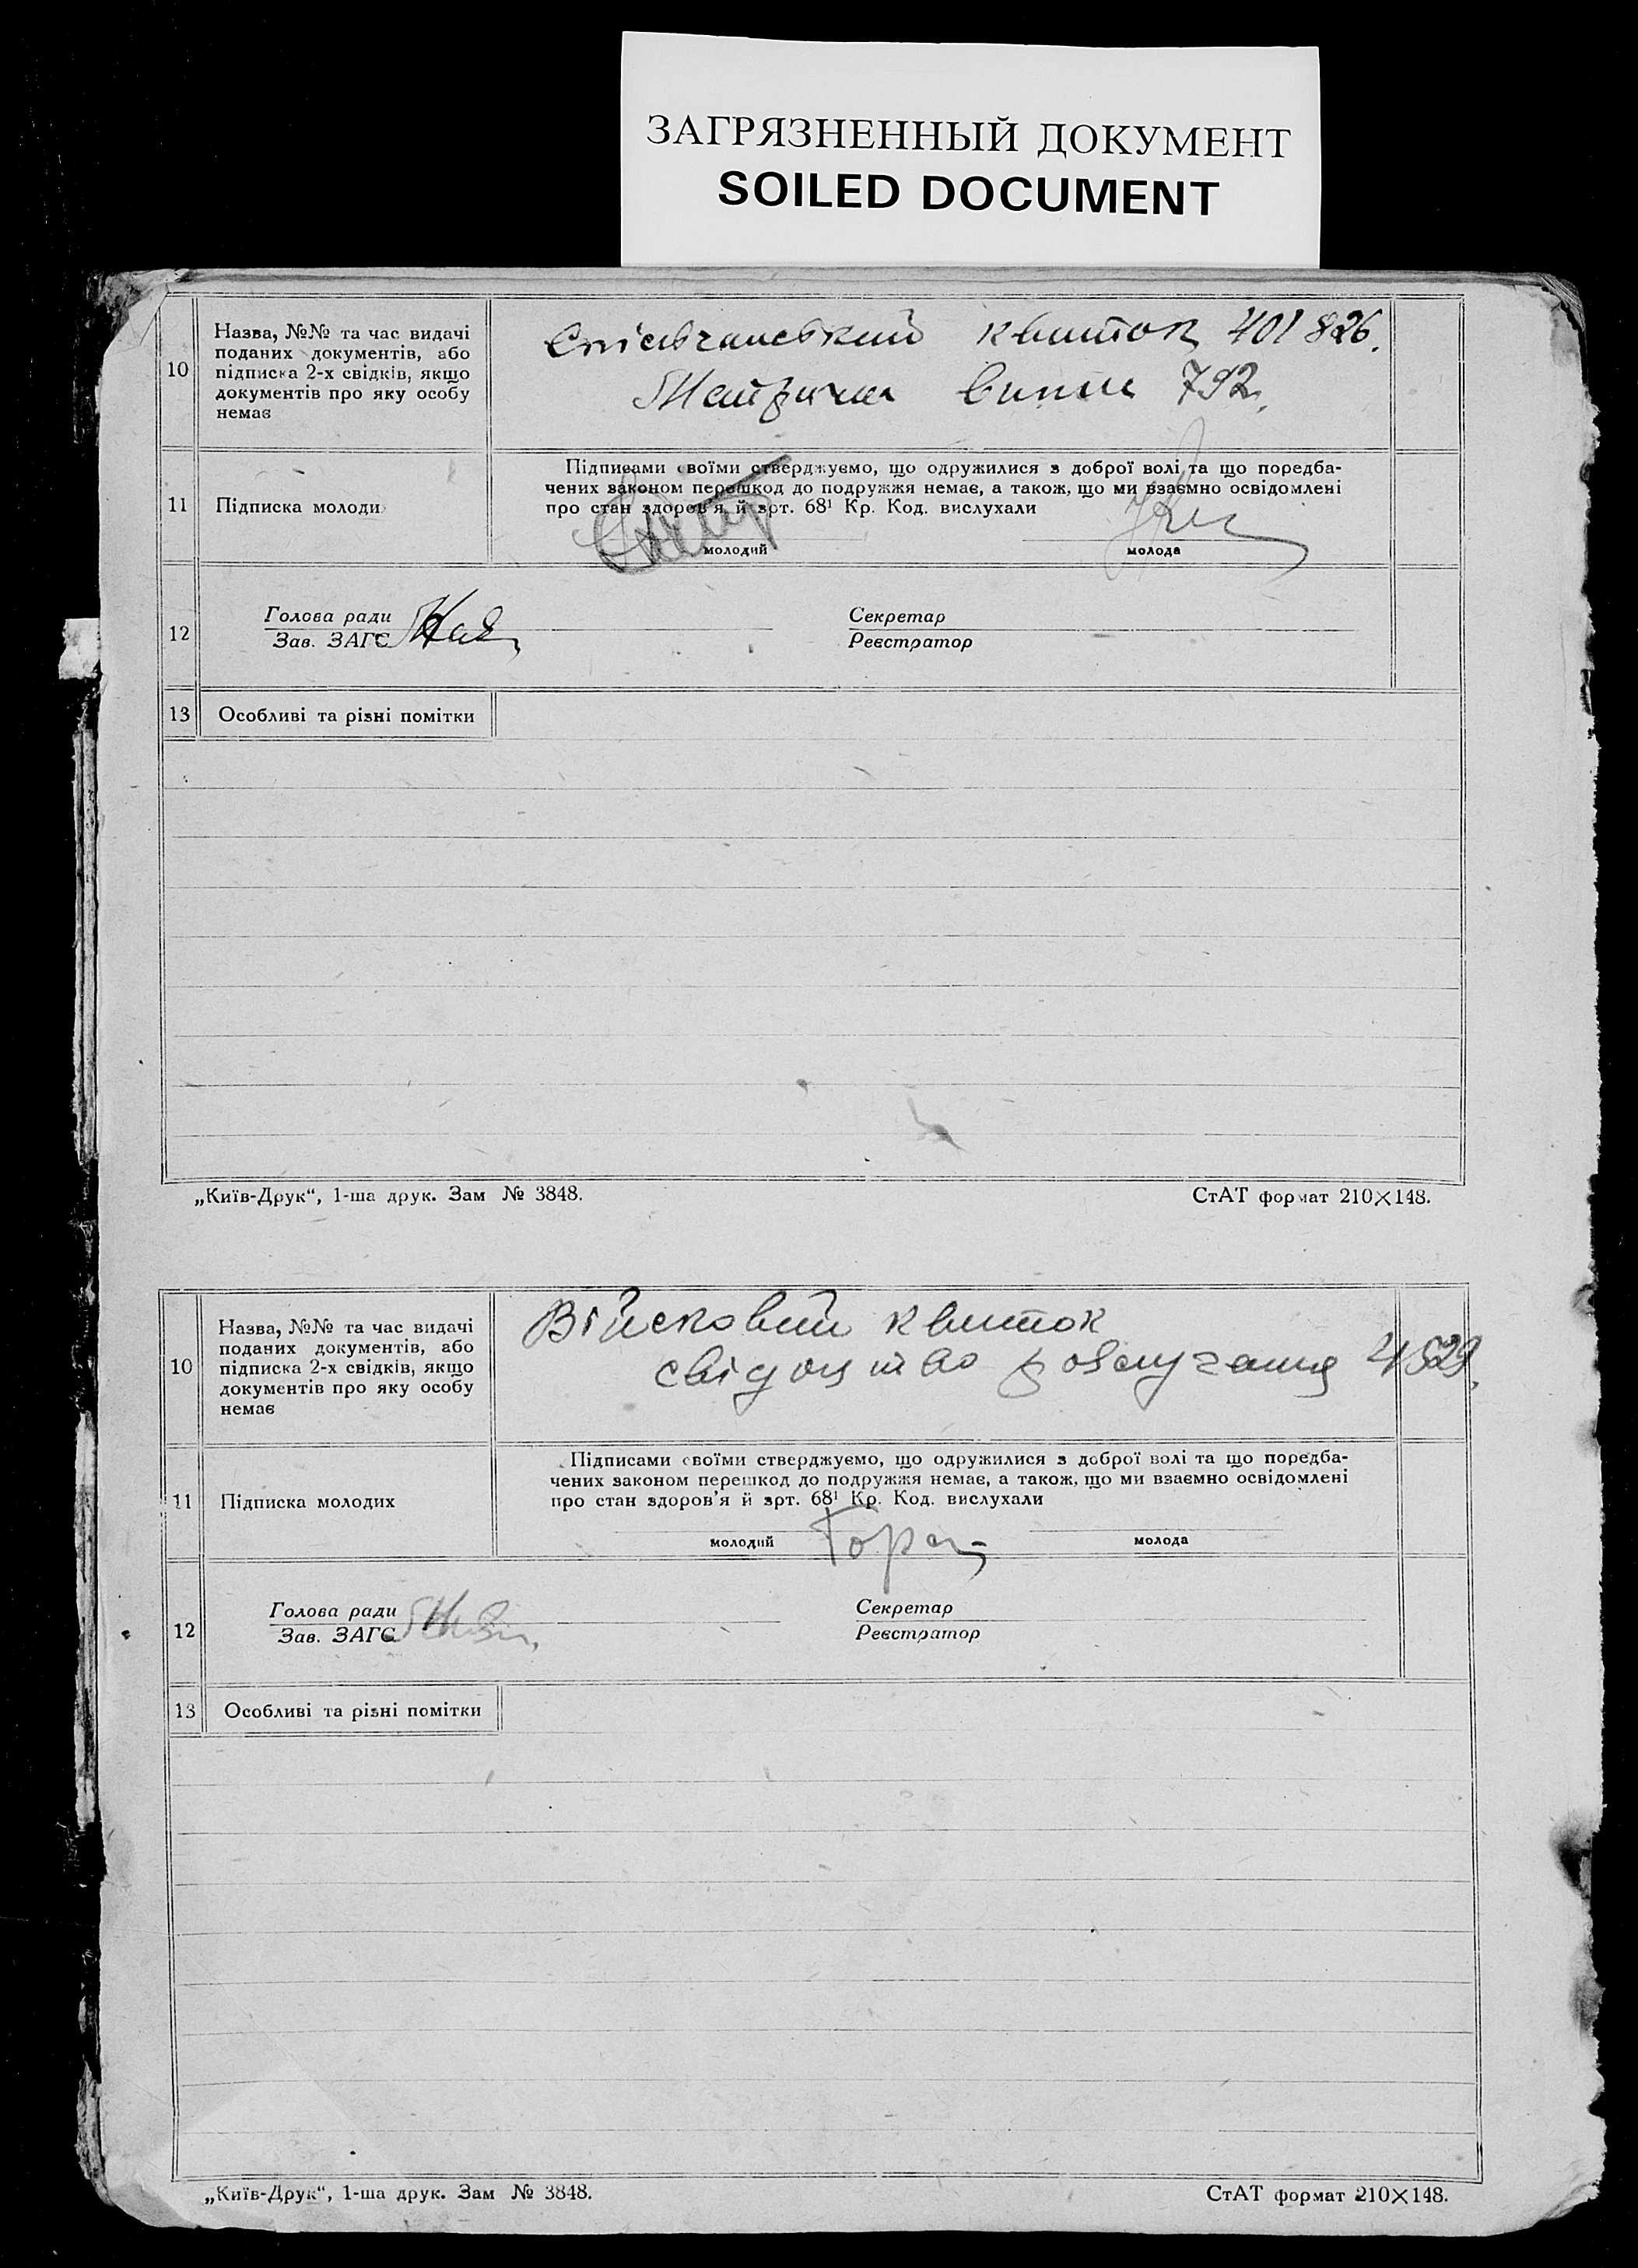 ЗАГРЯЗНЕННЫЙ ДОКУМЕНТ
SOILED DOCUMENT
10
Назва, №№ та час видачі
поданих документів, або
підписка 2-х свідків, якщо
документів про яку особу
немає
квиток 401826.
792.
11
Підписка молоди
Підписами своїми стверджуємо, що одружилися з доброї волі та що поредба-
чених законом перешкод до подружжя немає, а також, що ми взаємно освідомлені
про стан здоров'я й арт. 68¹ Кр. Код. вислухали
молодий
молода
12
Голова ради
Зав. ЗАГС
Секретар
Реєстратор
13
Особливі та різні помітки
„Київ-Друк“, 1-ша друк. Зам № 3848.
СтАТ формат 210×148.
10
Назва, №№ та час видачі
поданих документів, або
підписка 2-х свідків, якщо
документів про яку особу
немає
Військовий квиток
свідоцтво розлучення 4529.
11
Підписка молодих
Підписами своїми стверджуємо, що одружилися з доброї волі та що поредба-
чених законом перешкод до подружжя немає, а також, що ми взаємно освідомлені
про стан здоров'я й арт. 68¹ Кр. Код. вислухали
молодий
молода
12
Голова ради
Зав. ЗАГС
Секретар
Реєстратор
13
Особливі та різні помітки
„Київ-Друк“, 1-ша друк. Зам № 3848.
СтАТ формат 210×148.